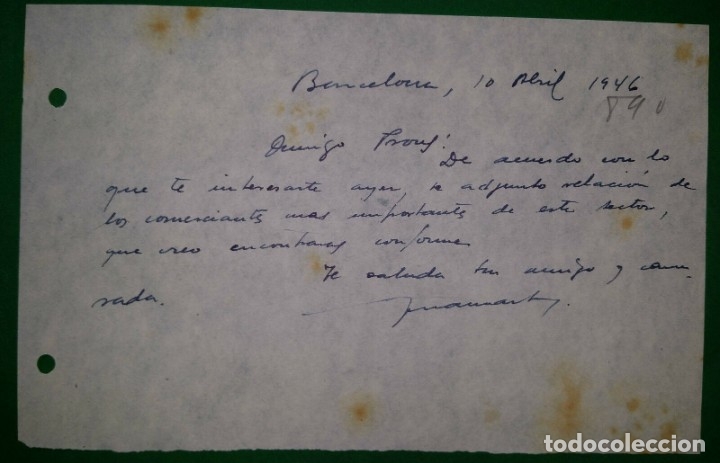 Barcelona, 10 Abril 1946
890
Amigo Prous:
De acuerdo con lo
que te interesaste ayer, te adjunto relación de
los comerciantes mas importantes de este sector,
que creo encontraras conforme.
Te saluda tu amigo y cama-
rada.
todocoleccion.net